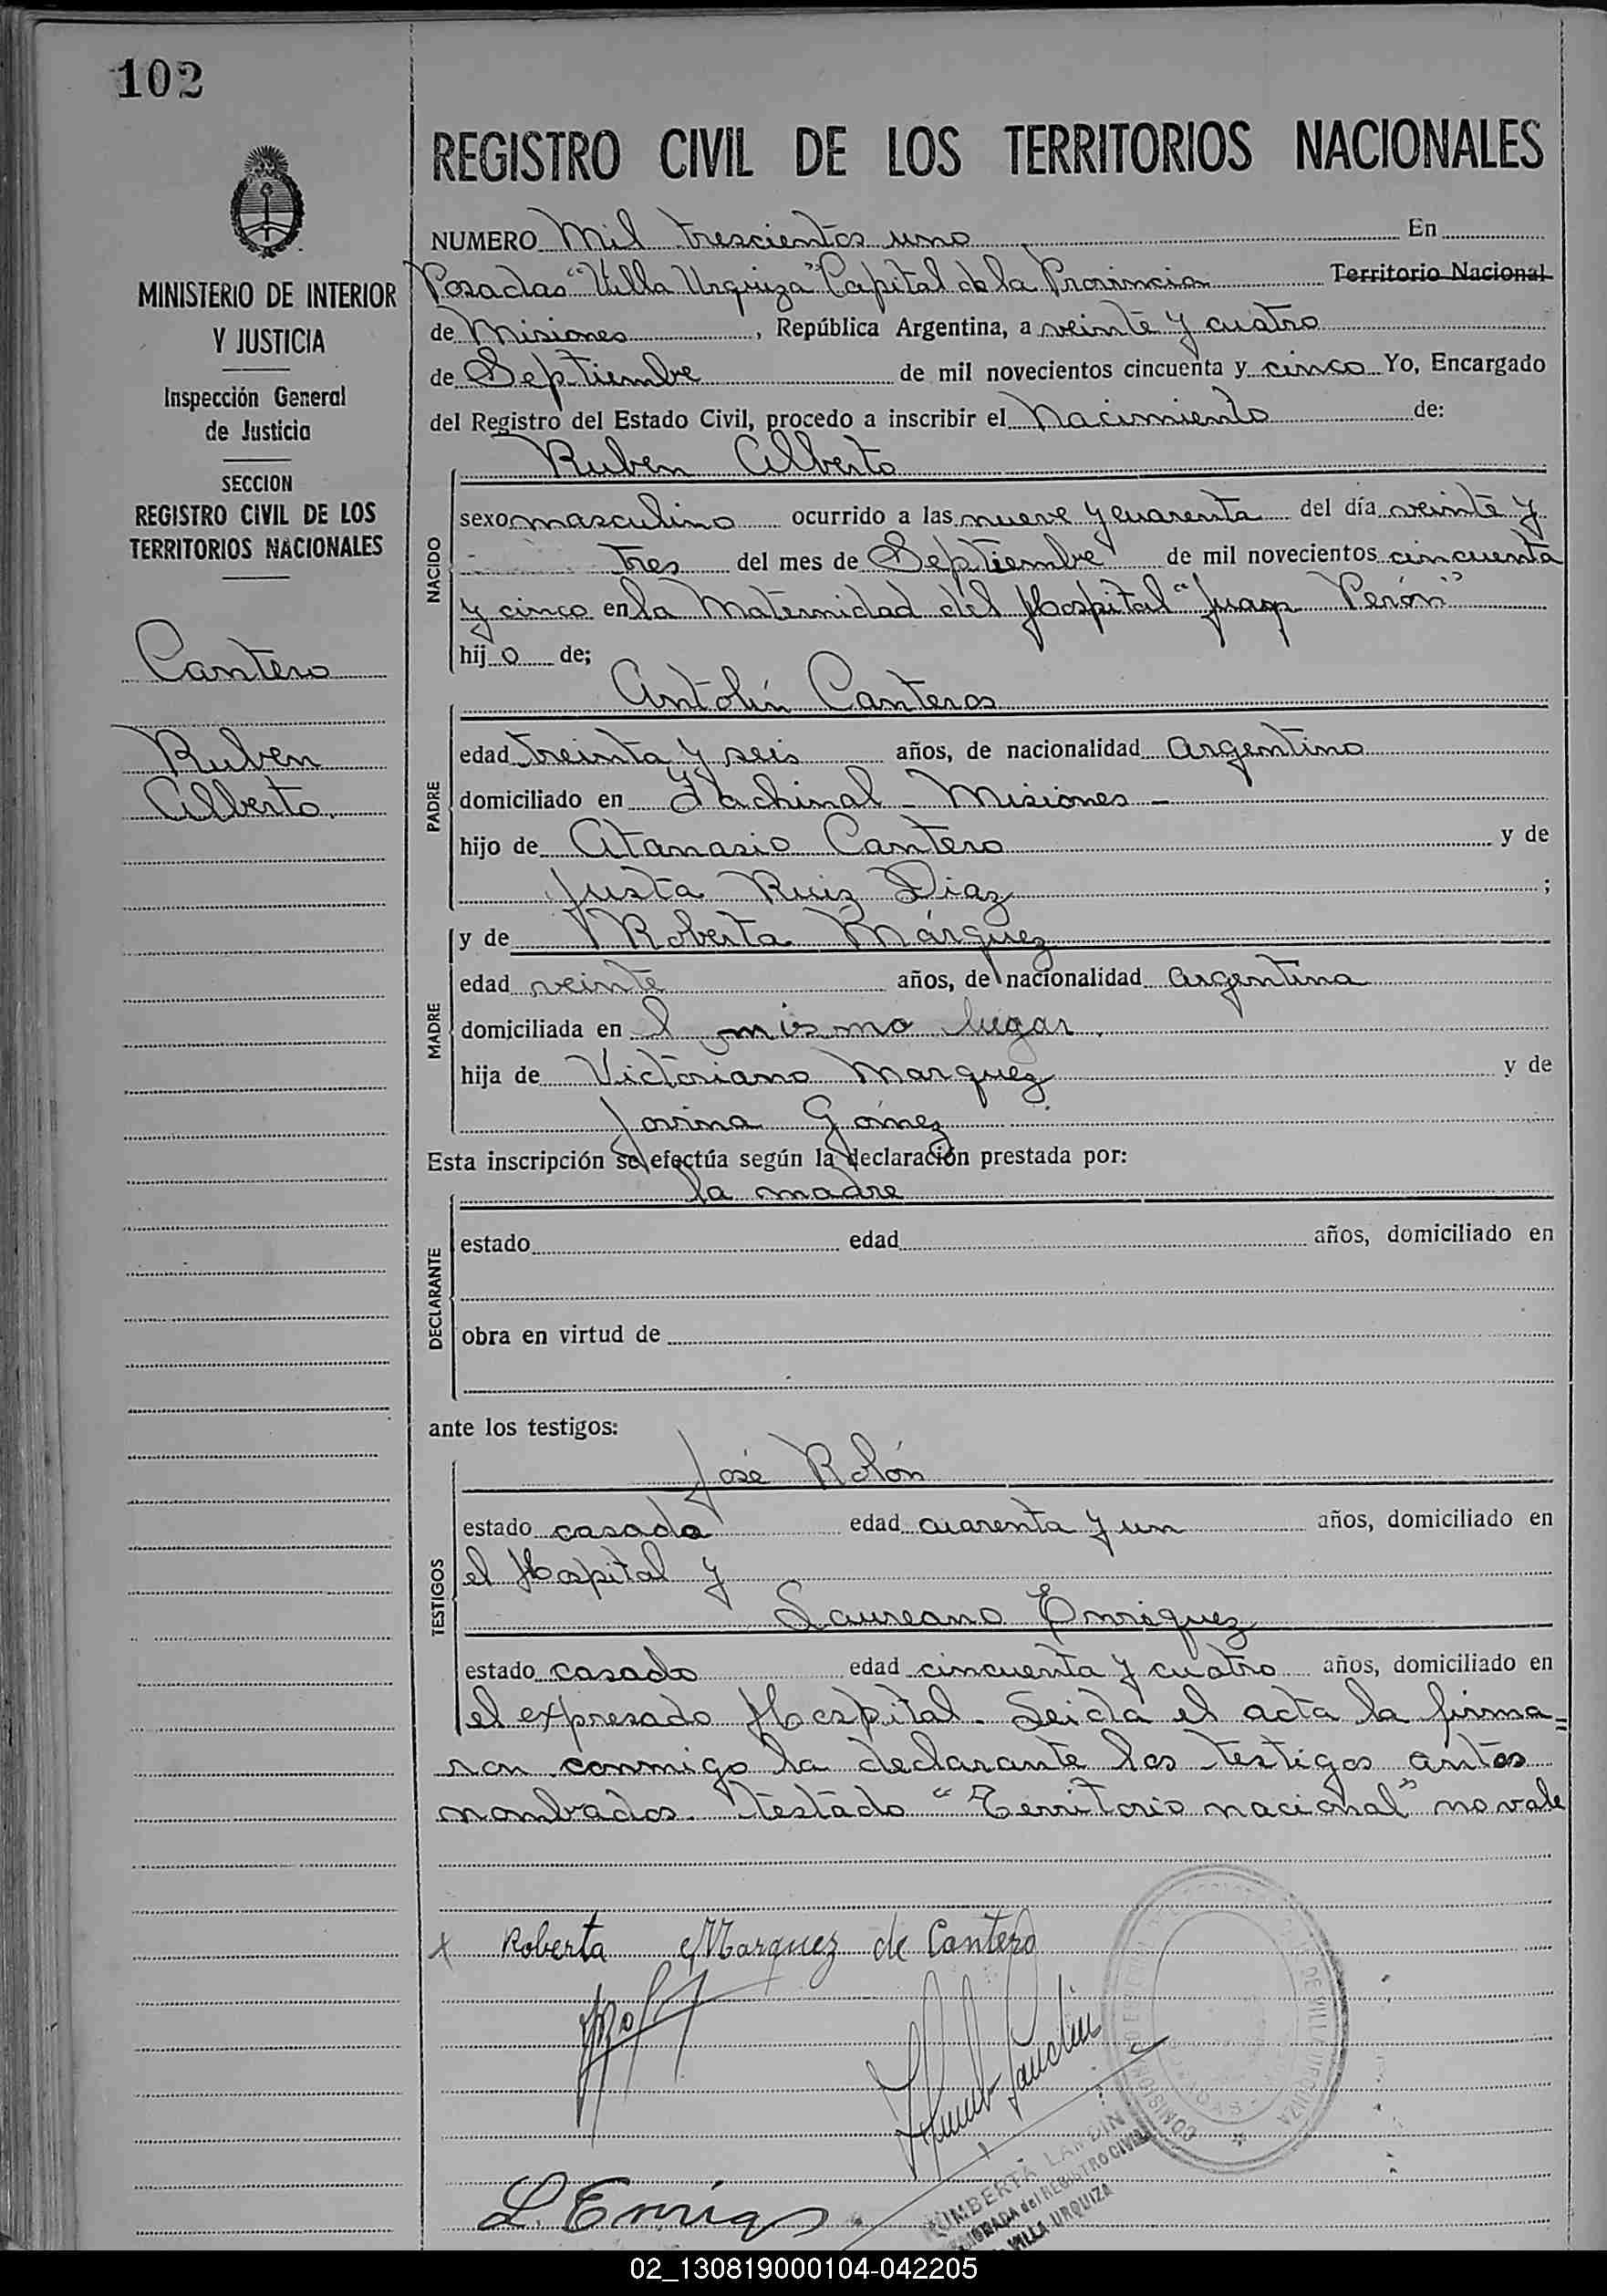 102
REGISTRO CIVIL DE LOS TERRITORIOS NACIONALES
MINISTERIO DE INTERIOR
Y JUSTICIA
Inspección General
de Justicia
SECCION
REGISTRO CIVIL DE LOS
TERRITORIOS NACIONALES
Cantero
Ruben
Alberto.
NUMERO Mil trescientos uno En
Posadas "Villa Urquiza" Capital de la Provincia Territorio Nacional
de Misiones, República Argentina, a veinte y cuatro
de Septiembre de mil novecientos cincuenta y cinco Yo, Encargado
del Registro del Estado Civil, procedo a inscribir el Nacimiento de:
NACIDO
Ruben Alberto
sexo masculino ocurrido a las nueve y cuarenta del día veinte y
tres del mes de Septiembre de mil novecientos cincuenta
y cinco en la Maternidad del Hospital " Perón"
hijo de;
PADRE
Antolín Canteros
edad treinta y seis años, de nacionalidad Argentino
domiciliado en Fachinal - Misiones -
hijo de Atanasio Cantero y de
Justa Ruiz Diaz ;
MADRE
y de Roberta Márquez
edad veinte años, de nacionalidad Argentina
domiciliada en l mismo lugar
hija de Victoriano Marquez y de
Jovina Gómez
Esta inscripción se efectúa según la declaración prestada por:
DECLARANTE
la madre
estado edad años, domiciliado en
obra en virtud de
ante los testigos:
TESTIGOS
José Rolón
estado casado edad cuarenta y un años, domiciliado en
el Hospital y
Laureano Enriquez
estado casado edad cincuenta y cuatro años, domiciliado en
el expresado Hospital. Leida el acta la firma=
ron conmigo la declarante los testigos antes
nombrados. Testado "Territorio nacional" no vale
x Roberta Marquez de Cantero
L. Enriq
DE VILLA URQUIZA
LANDIN
del REGISTRO CIVIL
VILLA URQUIZA
02_130819000104-042205